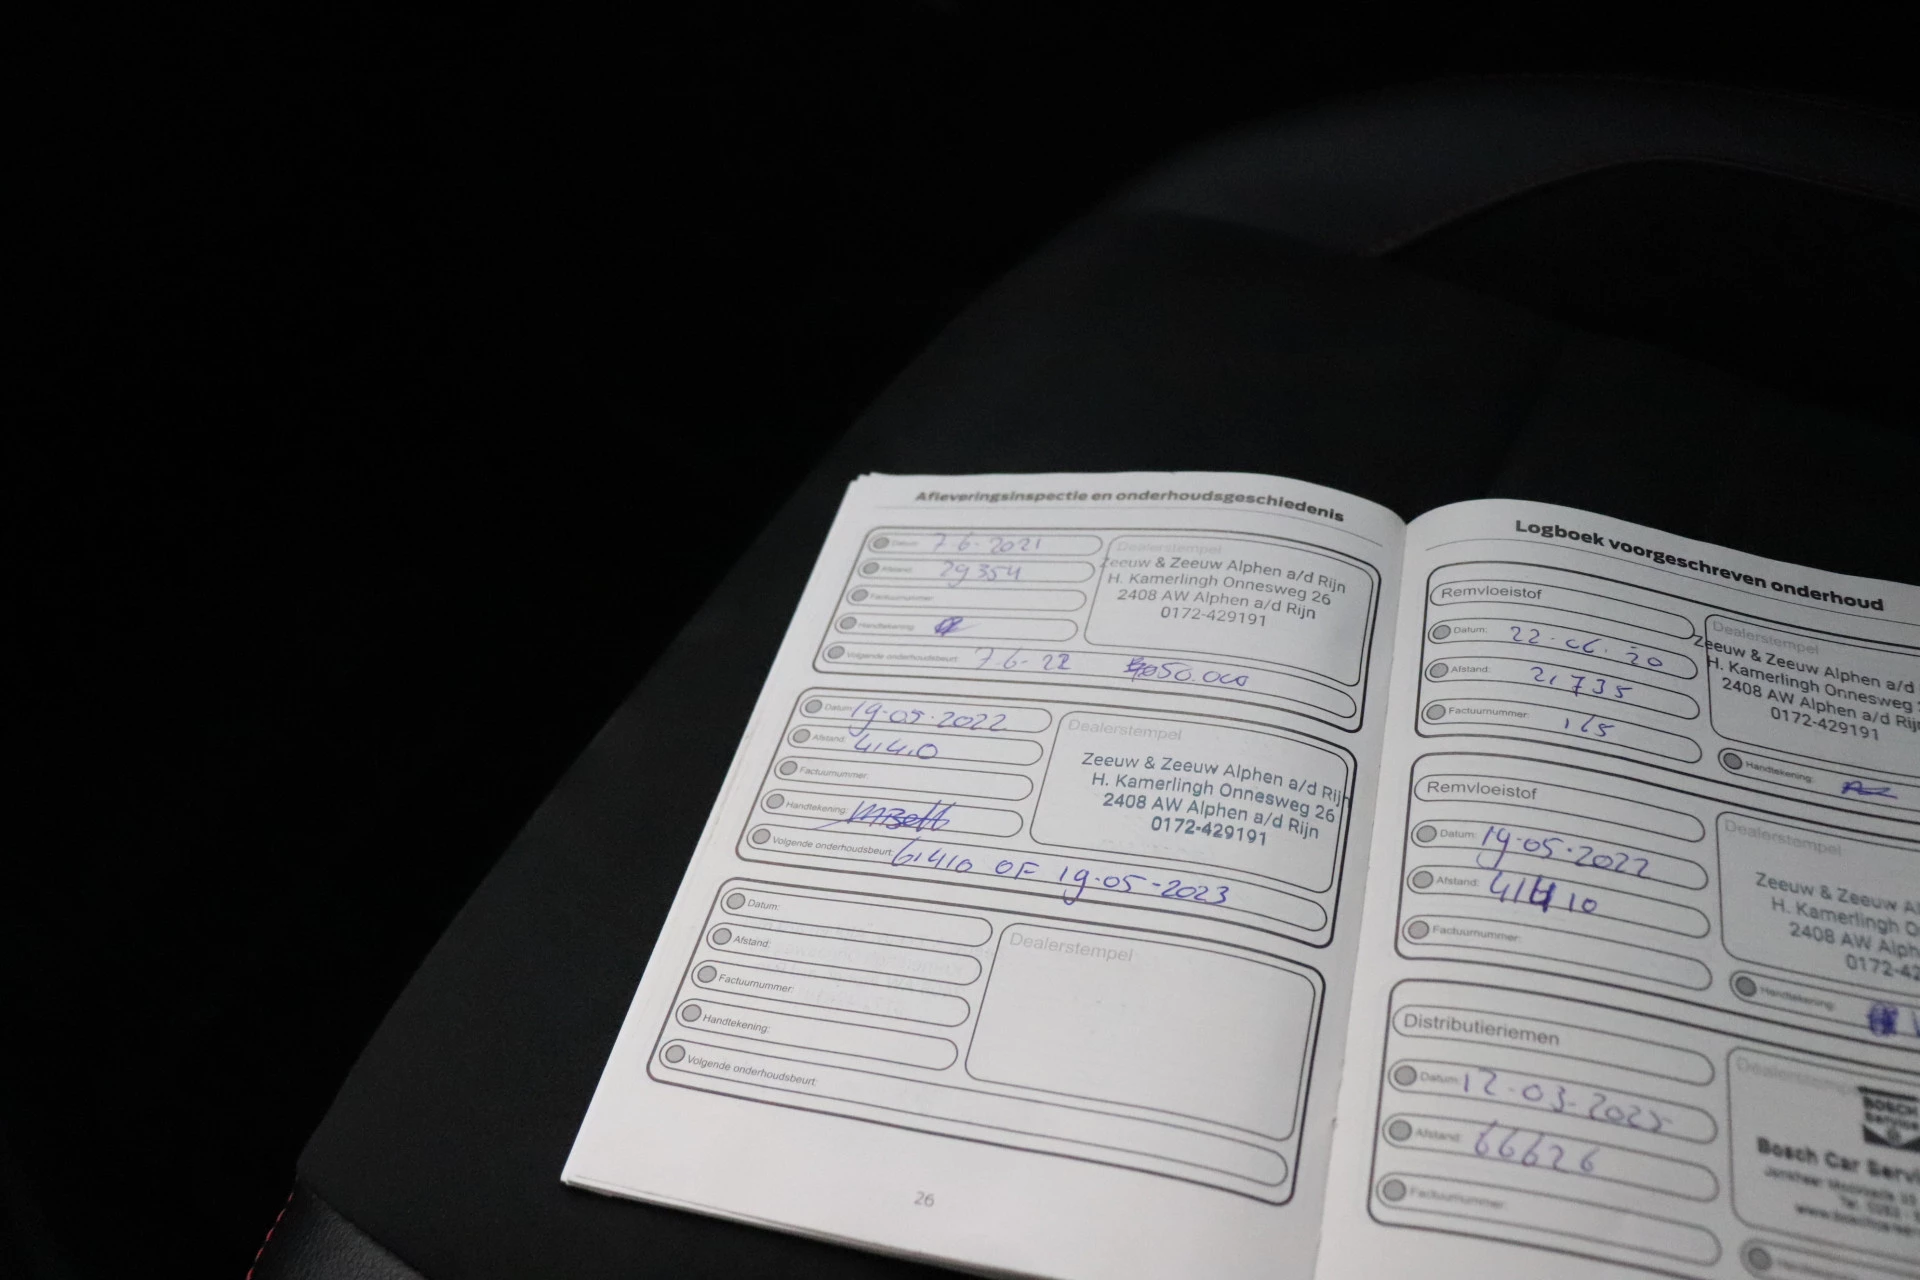 Afleveringsinspectie en onderhoudsgeschiedenis
Datum: 7-6-2021
Afstand: 29354
Factuurnummer:
Handtekening:
Volgende onderhoudsbeurt: 7-6-22 50.000
Dealerstempel
Zeeuw & Zeeuw Alphen a/d Rijn
H. Kamerlingh Onnesweg 26
2408 AW Alphen a/d Rijn
0172-429191
Datum: 19-05-2022
Afstand: 41410
Factuurnummer:
Handtekening:
Volgende onderhoudsbeurt: 61410 OF 19-05-2023
Dealerstempel
Zeeuw & Zeeuw Alphen a/d Rijn
H. Kamerlingh Onnesweg 26
2408 AW Alphen a/d Rijn
0172-429191
Datum:
Afstand:
Factuurnummer:
Handtekening:
Volgende onderhoudsbeurt:
Dealerstempel
26
Logboek voorgeschreven onderhoud
Remvloeistof
Datum: 22-06-20
Afstand: 21735
Factuurnummer:
Dealerstempel
Zeeuw & Zeeuw Alphen a/d
H. Kamerlingh Onnesweg
2408 AW Alphen a/d Rijn
0172-429191
Handtekening:
Remvloeistof
Datum: 19-05-2022
Afstand: 41410
Factuurnummer:
Dealerstempel
Zeeuw & Zeeuw
H. Kamerlingh
2408 AW Alph
0172-42
Handtekening:
Distributieriemen
Datum: 12-03-
Afstand: 66626
Factuurnummer:
Dealerstempel
BOSCH
Service
Bosch Car Servi